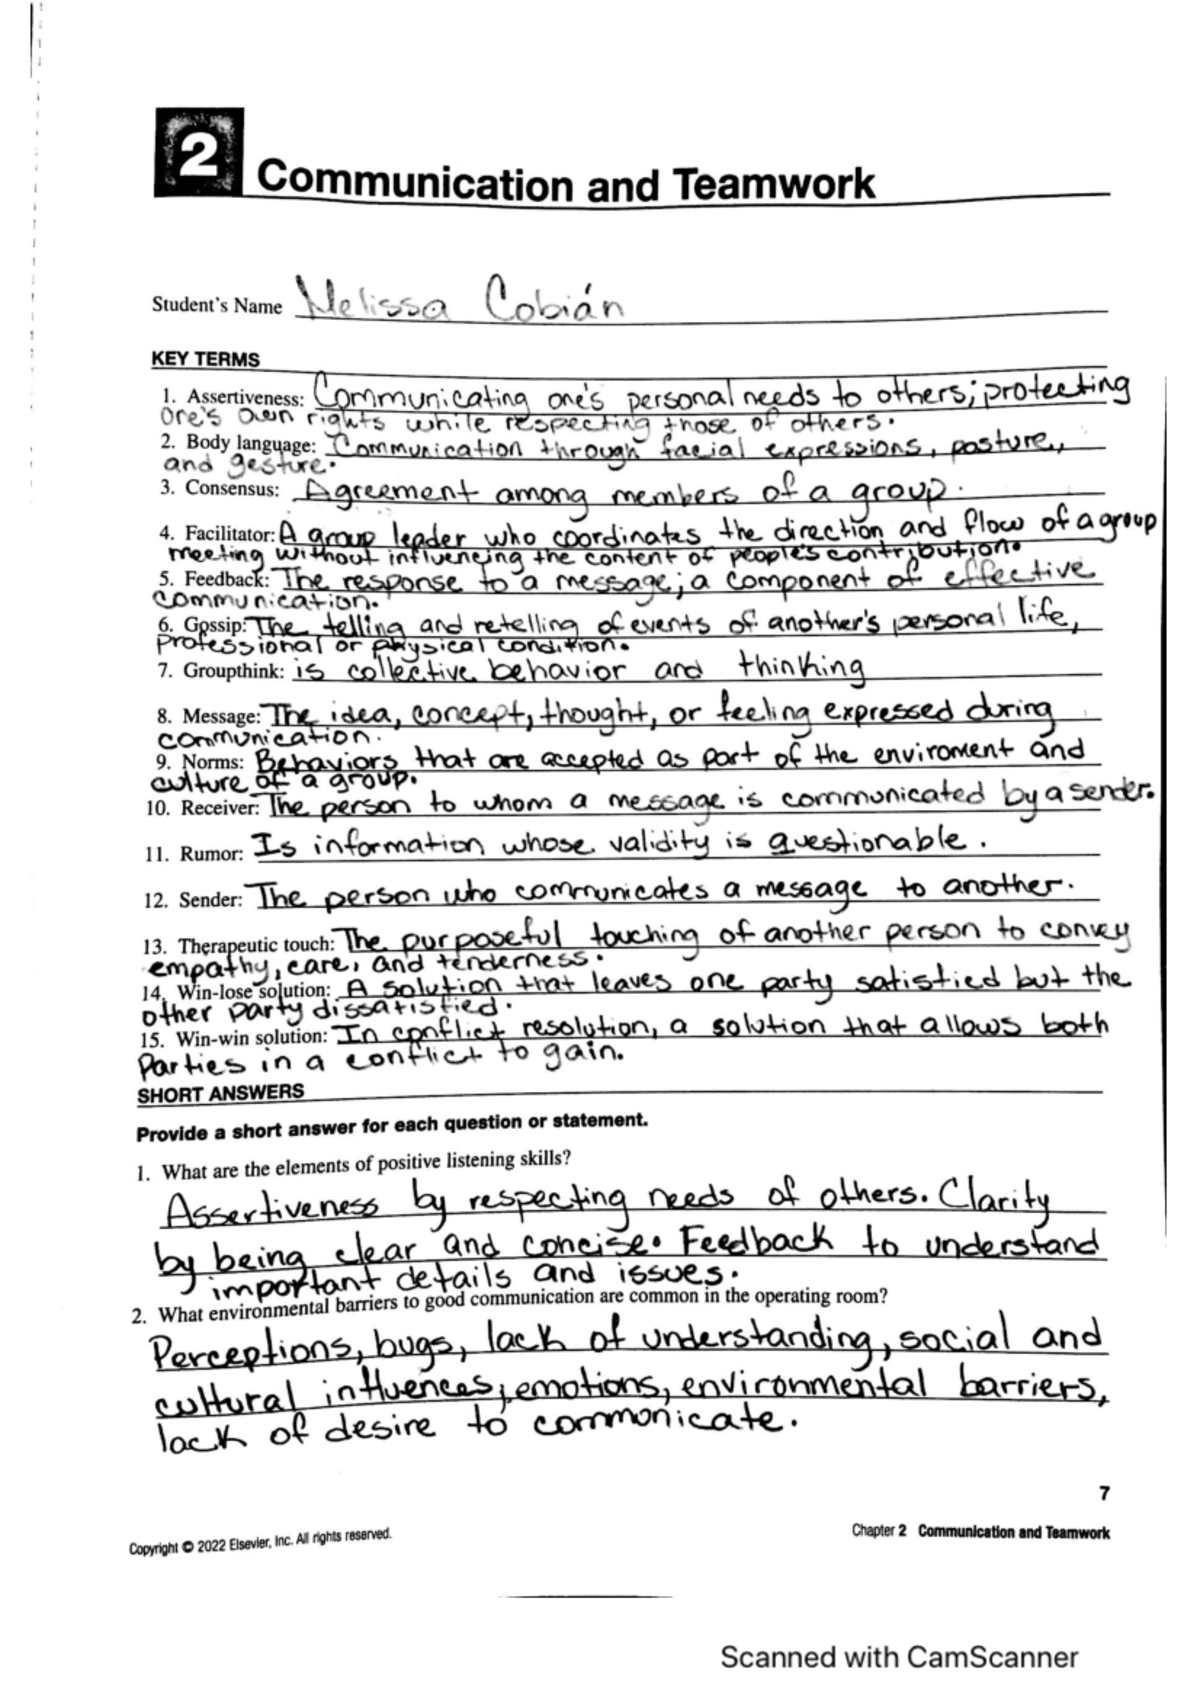 2 Communication and Teamwork
Student's Name Melissa Cobián
KEY TERMS
1. Assertiveness: Communicating one's personal needs to others; protecting
one's own rights while respecting those of others.
2. Body language: Communication through facial expressions, posture,
and gesture.
3. Consensus: Agreement among members of a group.
4. Facilitator: A group leader who coordinates the direction and flow of a group
meeting without influencing the content of people's contribution.
5. Feedback: The response to a message; a component of effective
communication.
6. Gossip: The telling and retelling of events of another's personal life,
Professional or physical condition.
7. Groupthink: is collective behavior and thinking
8. Message: The idea, concept, thought, or feeling expressed during
communication.
9. Norms: Behaviors that are accepted as part of the enviroment and
culture of a group.
10. Receiver: The person to whom a message is communicated by a sender.
11. Rumor: Is information whose validity is questionable.
12. Sender: The person who communicates a message to another.
13. Therapeutic touch: The purposeful touching of another person to convey
empathy, care, and tenderness.
14. Win-lose solution: A solution that leaves one party satisfied but the
other party dissatisfied.
15. Win-win solution: In conflict resolution, a solution that allows both
Parties in a conflict to gain.
SHORT ANSWERS
Provide a short answer for each question or statement.
1. What are the elements of positive listening skills?
Assertiveness by respecting needs of others. Clarity
by being clear and concise. Feedback to understand
important details and issues.
2. What environmental barriers to good communication are common in the operating room?
Perceptions, bugs, lack of understanding, social and
cultural influences, emotions, environmental barriers,
lack of desire to communicate.
7
Copyright © 2022 Elsevier, Inc. All rights reserved.
Chapter 2 Communication and Teamwork
Scanned with CamScanner